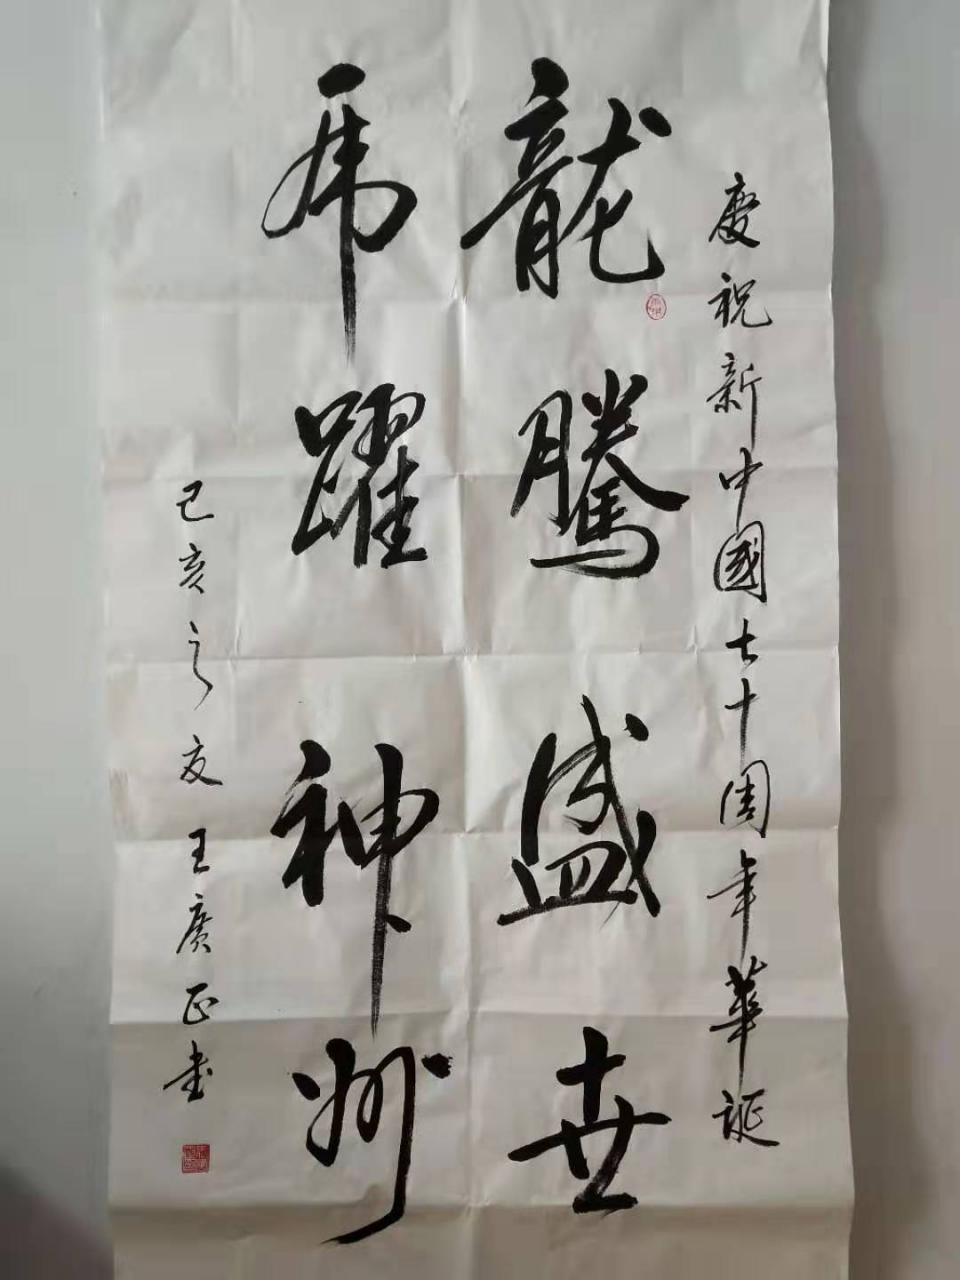 慶祝新中國七十周年華誕
龍騰盛世
虎躍神州
己亥之夏王廣正书